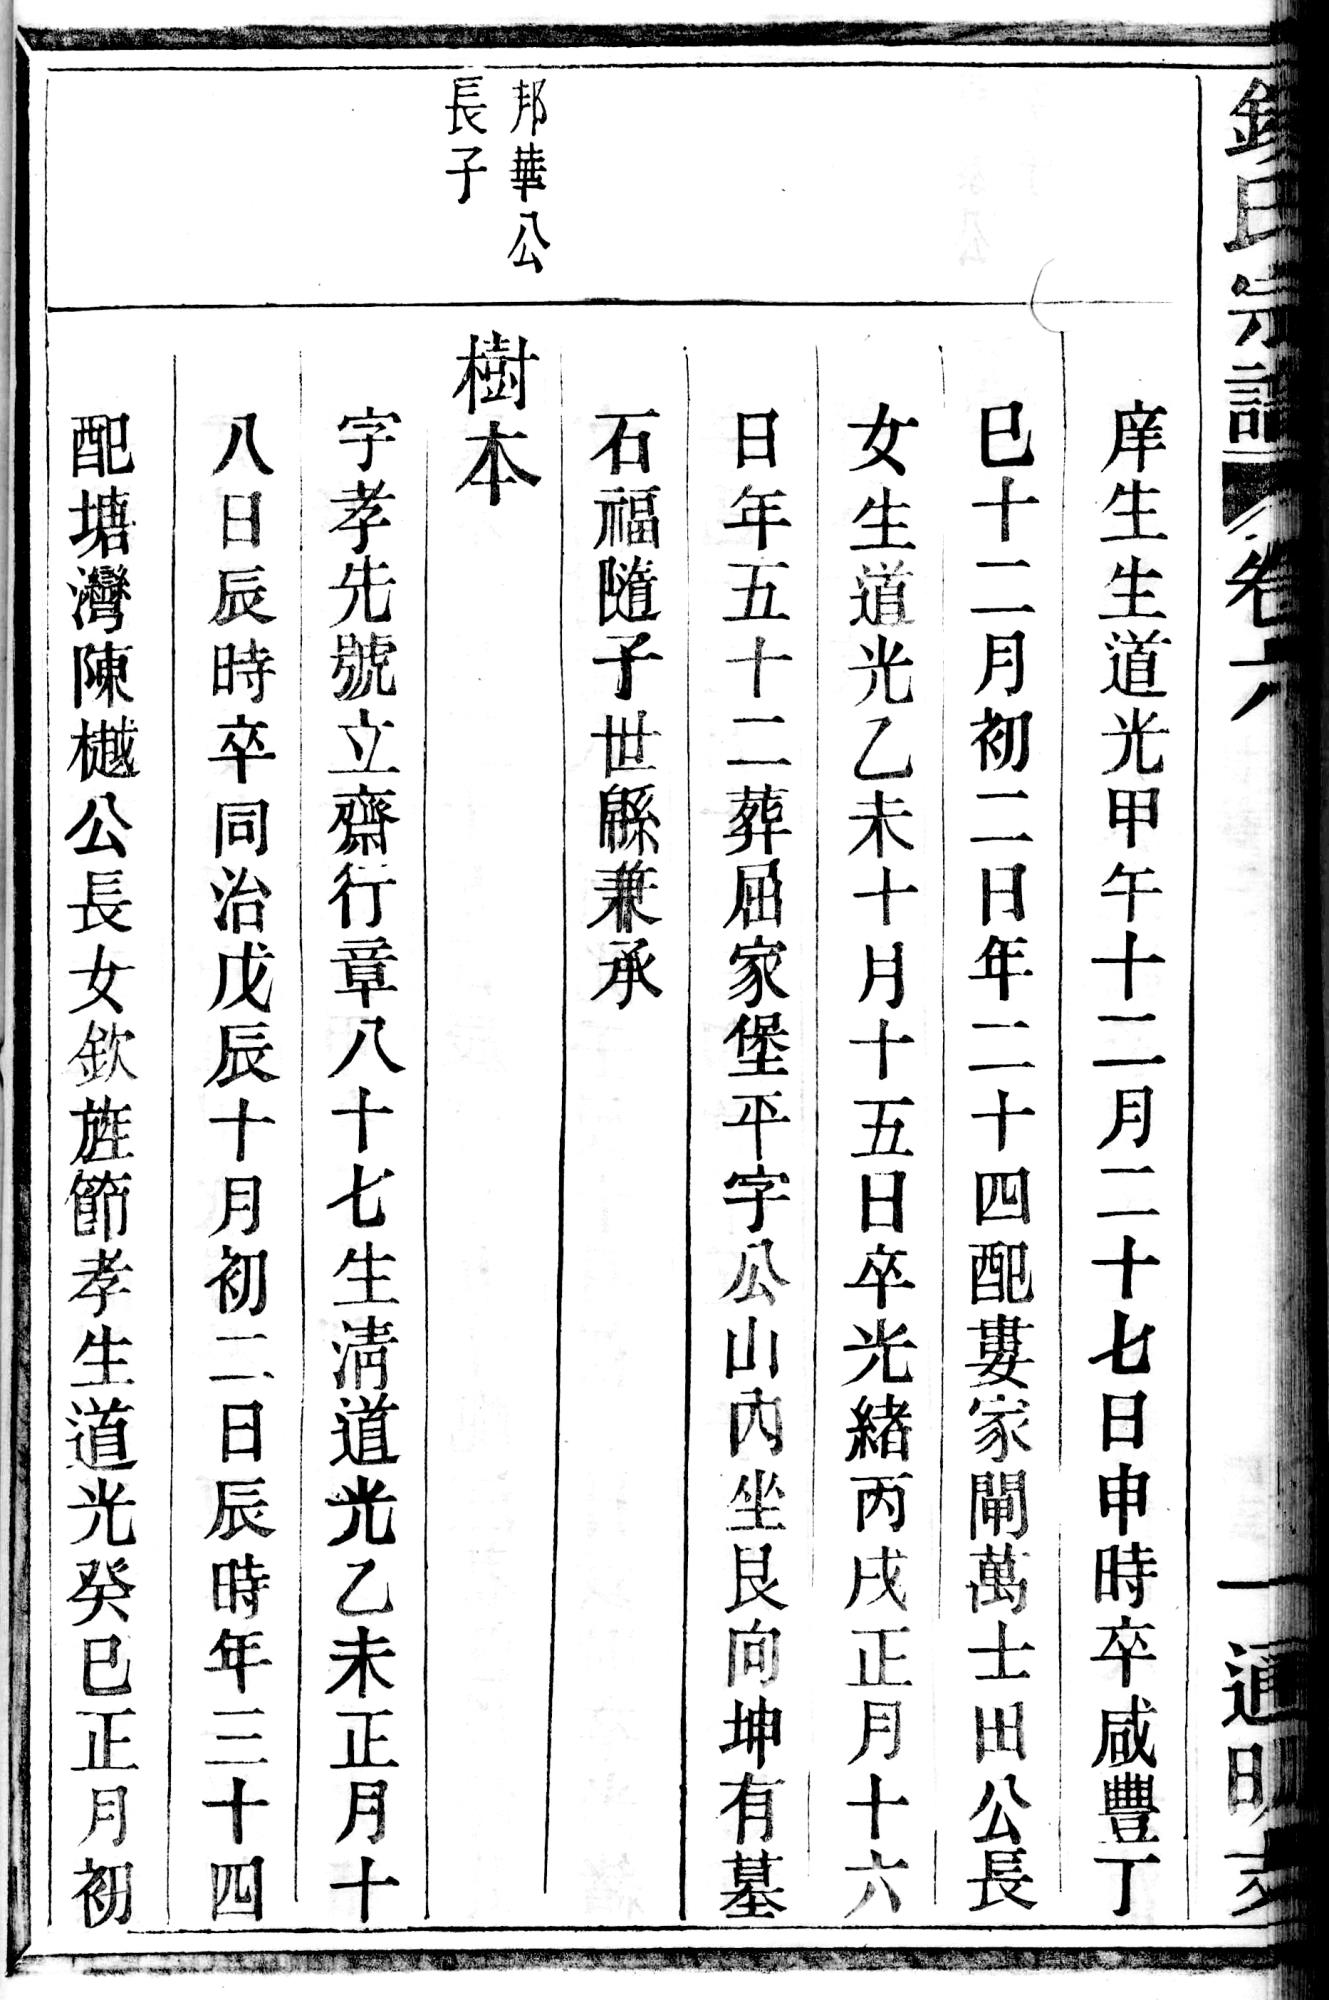 錢氏宗譜 卷六 一 通明支
庠生生道光甲午十二月二十七日申時卒咸豐丁
巳十二月初二日年二十四配婁家閘萬士田公長
女生道光乙未十月十五日卒光緒丙戌正月十六
日年五十二葬屈家堡平字公山內坐艮向坤有墓
石福隨子世緜兼承
邦華公
長子
樹本
字孝先號立齋行章八十七生清道光乙未正月十
八日辰時卒同治戊辰十月初二日辰時年三十四
配塘灣陳樾公長女欽旌節孝生道光癸巳正月初